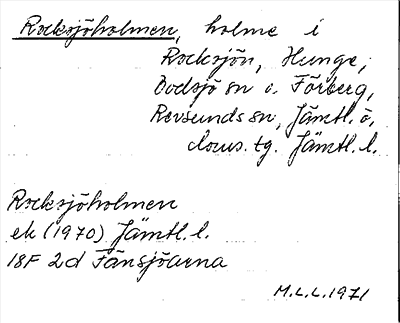 Rocksjöholmen, holme i
Rocksjön, Hunge,
Bodsjö sn o. Förberg,
Revsunds sn, Jämtl. ö,
doms. tg. Jämtl. l.
Rocksjöholmen
ek (1970) Jämtl. l.
18F 2d Fänsjöarna
M.L.L. 1971